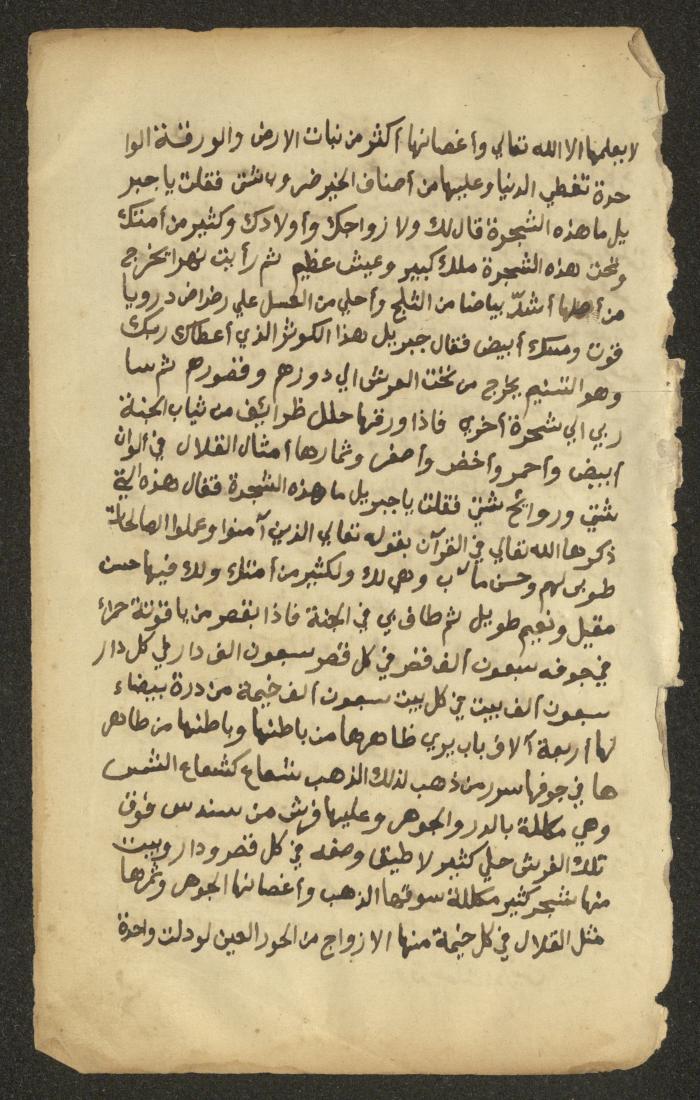 لا يعلمها الا الله تعالي وأغصانها أكثر من نبات الارض والورقة الوا
حدة تغطي الدنيا وعليها من أصناف الخير ضروب شتى فقلت يا جبر
يل ما هذه الشجرة قال لك ولازواجك وأولادك وكثير من أمتك
وتحت هذه الشجرة ملك كبير وعيش عظيم ثم رأيت نهرا يخرج
من أصلها أشدّ بياضا من الثلج وأحلي من العسل علي رضراض در ويا
قوت ومسك أبيض فقال جبريل هذا الكوثر الذي أعطاك ربك
وهو التسنيم يخرج من تحت العرش الي دورهم وقصورهم ثم سا
ر بي الي شجرة أخري فاذا ورقها حلل ظرائف من ثياب الجنة
أبيض وأحمر وأخضر وأصفر وثمارها أمثال القلال في ألوان
شتي وروائح شتي فقلت يا جبريل ما هذه الشجرة فقال هذه التي
ذكرها الله تعالي في القرآن بقوله تعالي الذين آمنوا وعملوا الصالحات
طوبى لهم وحسن مآب وهي لك ولكثير من أمتك ولك فيها حسن
مقيل ونعيم طويل ثم طاف بي في الجنة فاذا بقصر من ياقوتة حمراء
في جوفه سبعون ألف قصر في كل قصر سبعون الف دار في كل دار
سبعون ألف بيت في كل بيت سبعون الف خيمة من درة بيضاء
لها أربعة آلاف باب يري ظاهرها من باطنها وباطنها من ظاهر
ها في جوفها سرر من ذهب لذلك الذهب شعاع كشعاع الشمس
وهي مكللة بالدر والجوهر وعليها فرش من سندس فوق
تلك الفرش حلي كثير لا طيق وصفه في كل قصر ودار وبيت
منها شجر كثير مكللة سوقها الذهب وأغصانها الجوهر وثمرها
مثل القلال في كل خيمة منها الازواج من الحور العين لو دلت واحدة